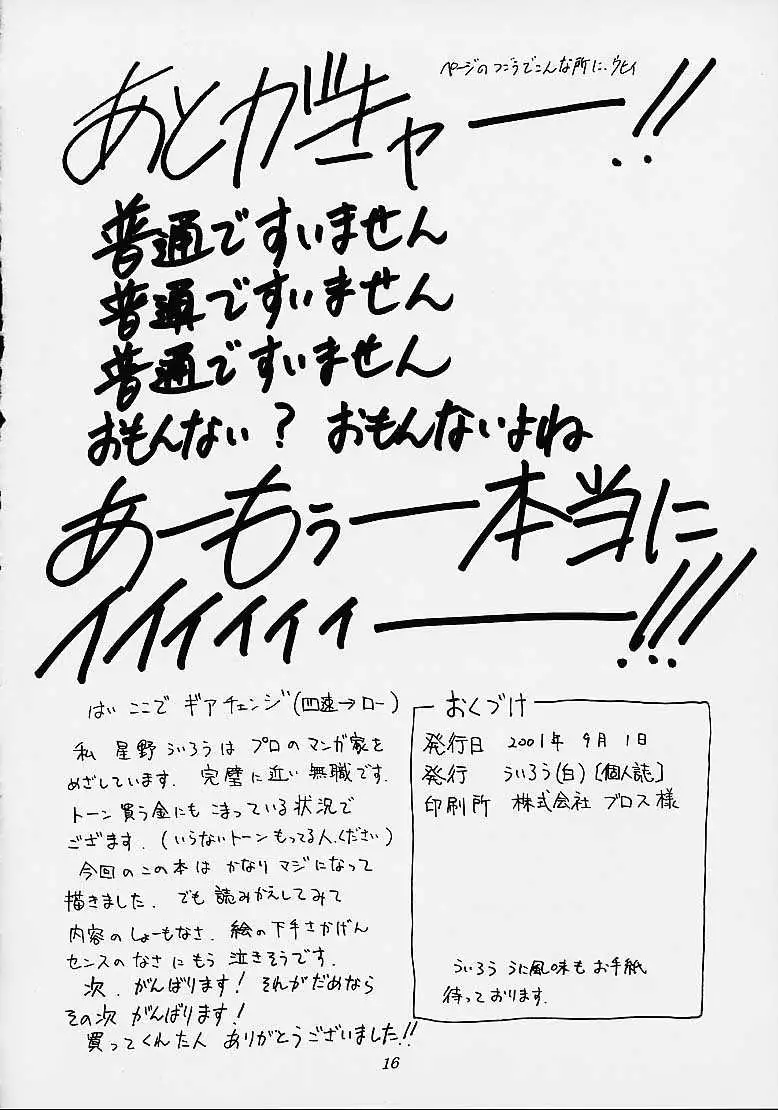 ページのつごうでこんな所に、ウヒィ
あとがキャー!!
普通ですいません
普通ですいません
普通ですいません
おもんない? おもんないよね
あーもぅー本当に
イイイィィィー!!!
はい ここで ギアチェンジ(四速→ロー)
私 星野ういろうは プロのマンガ家を
めざしています. 完璧に近い無職です.
トーン買う金にも こまっている状況で
ござます. (いらないトーンもってる人、ください)
今回のこの本は かなりマジになって
描きました. でも 読みかえしてみて
内容のしょーもなさ. 絵の下手さかげん
センスのなさにもう 泣きそうです.
次. がんばります! それがだめなら
その次 がんばります!
買ってくれた人 ありがとうございました!!
おくづけ
発行日 2001年 9月1日
発行 ういろう(白) [個人誌]
印刷所 株式会社 ブロス様
ういろう うに風味も お手紙
待っております.
16